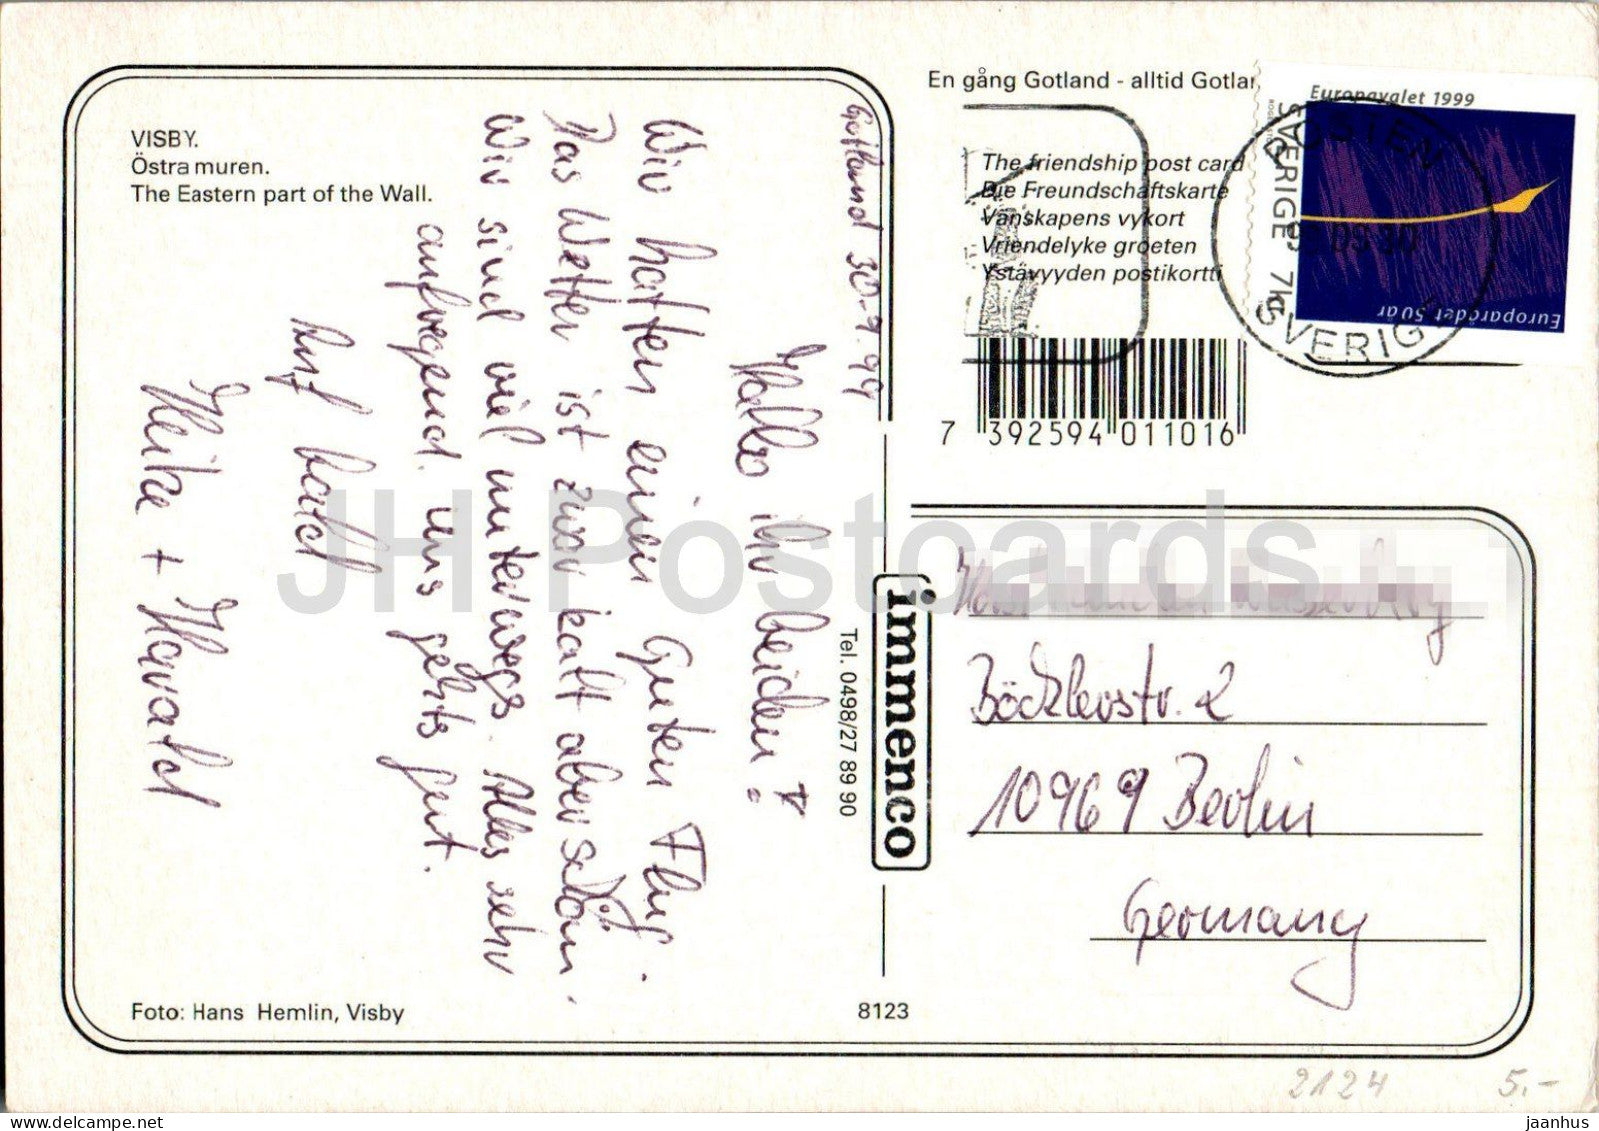 VISBY.
Östra muren.
The Eastern part of the Wall.
Gotland 30.7.99
Hallo ihr beiden!
Wir hatten einen Guten Flug.
Das Wetter ist zwar kalt aber schön.
Wir sind viel unterwegs. Alles sehr
aufregend. Uns gehts gut.
Auf bald
Heike + Harald
Foto: Hans Hemlin, Visby
8123
immenco
Tel. 0498/27 89 90
En gång Gotland - alltid Gotlan
The friendship post card
Die Freundschaftskarte
Vänskapens vykort
Vriendelyke groeten
Ystävyyden postikortti
7 392594 011016
Europavalet 1999
SVERIGE 7kr
Europarådet 50 år
POSTEN
SVERIGE
Böcklerstr. 2
10969 Berlin
Germany
2124
5.-
JH Postcards
www.delcampe.net
jaanhus